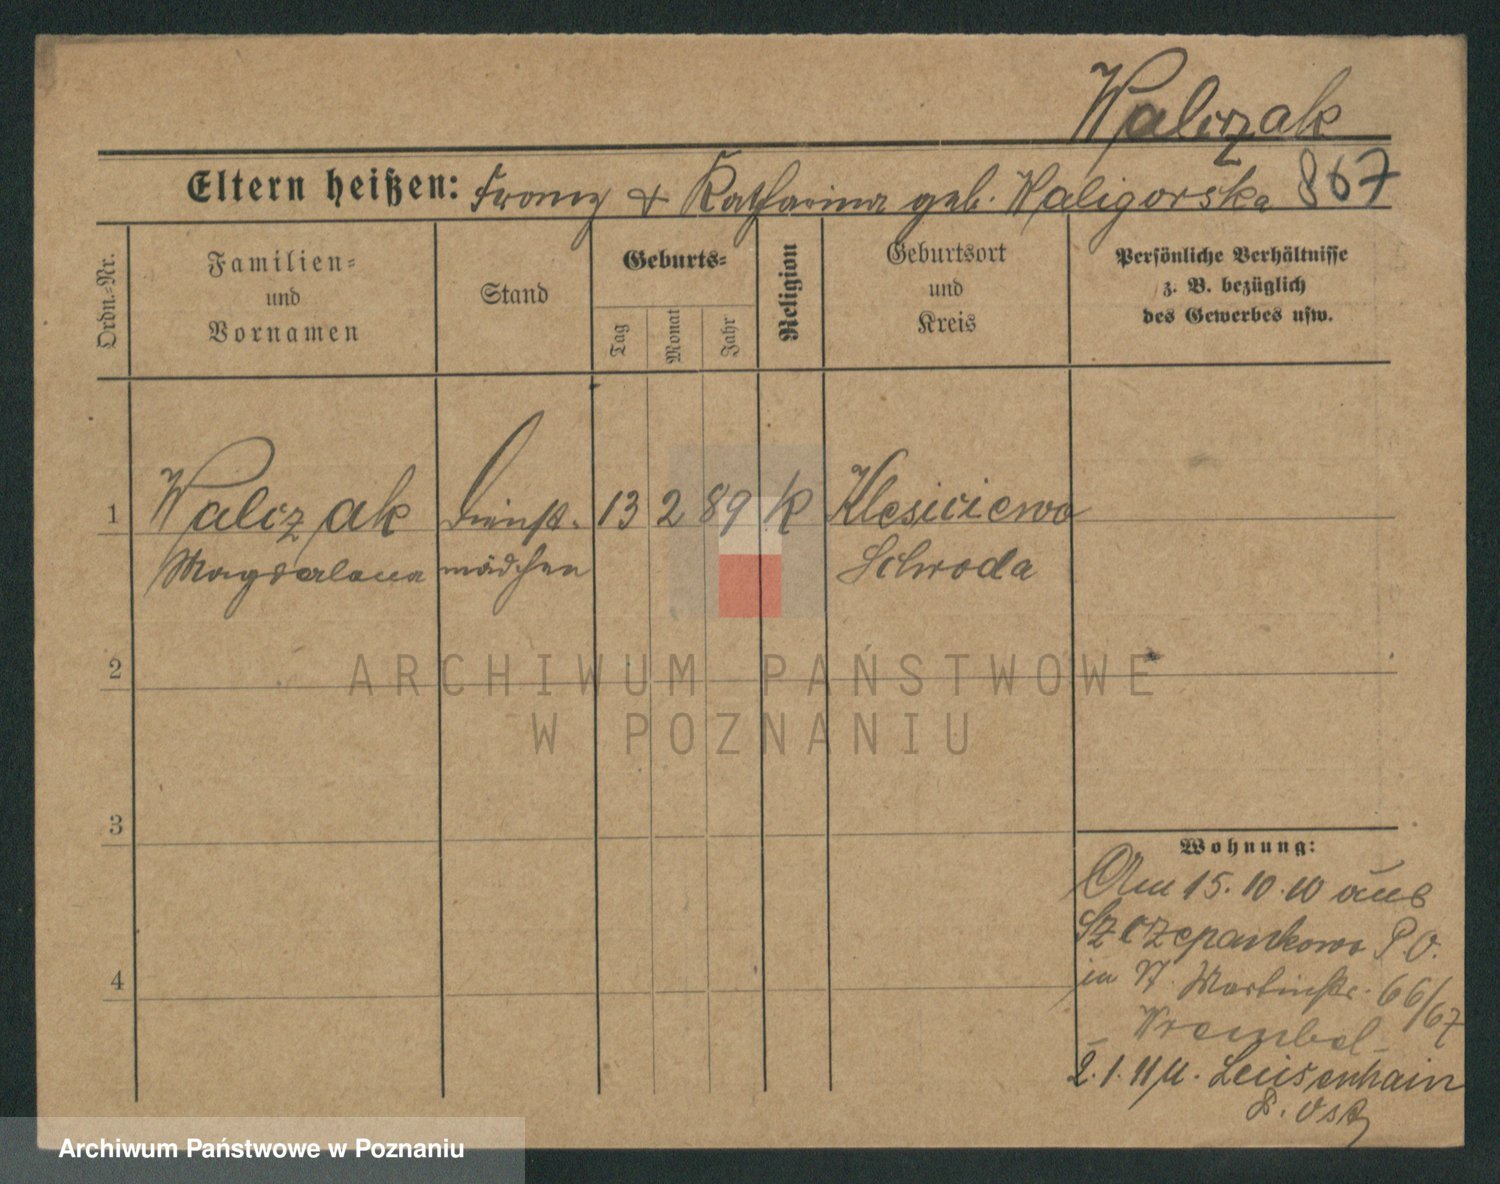 Walczak
Eltern heißen: Franz & Katharina geb. Waligorska 867
Ordn.-Nr.
Familien-
und
Vornamen
Stand
Geburts-
Tag
Monat
Jahr
Religion
Geburtsort
und
Kreis
Persönliche Verhältnisse
z. B. bezüglich
des Gewerbes usw.
1 Walczak Dienst- 13 2 89 K
Magdalena mädchen Schroda
2
ARCHIWUM PAŃSTWOWE
W POZNANIU
3
4
Wohnung:
Am 15.10.10 aus
Szczepankowo P. O.
in St. Martinstr. 66/67
2.1.11 Luisenhain
P. Ost
Archiwum Państwowe w Poznaniu